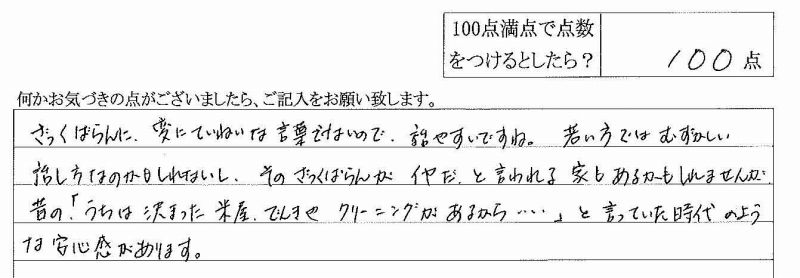 100点満点で点数
をつけるとしたら？ 100点
何かお気づきの点がございましたら、ご記入をお願い致します。
ざっくばらんに、変にていねいな言葉ではないので、話やすいですね。 若い方ではむずかしい
話し方なのかもしれないし、そのざっくばらんがイヤだ、と言われる家もあるかもしれませんが
昔の、「うちは決まった米屋、でんきや クリーニングがあるから…‥」と言っていた時代のよう
な安心感があります。